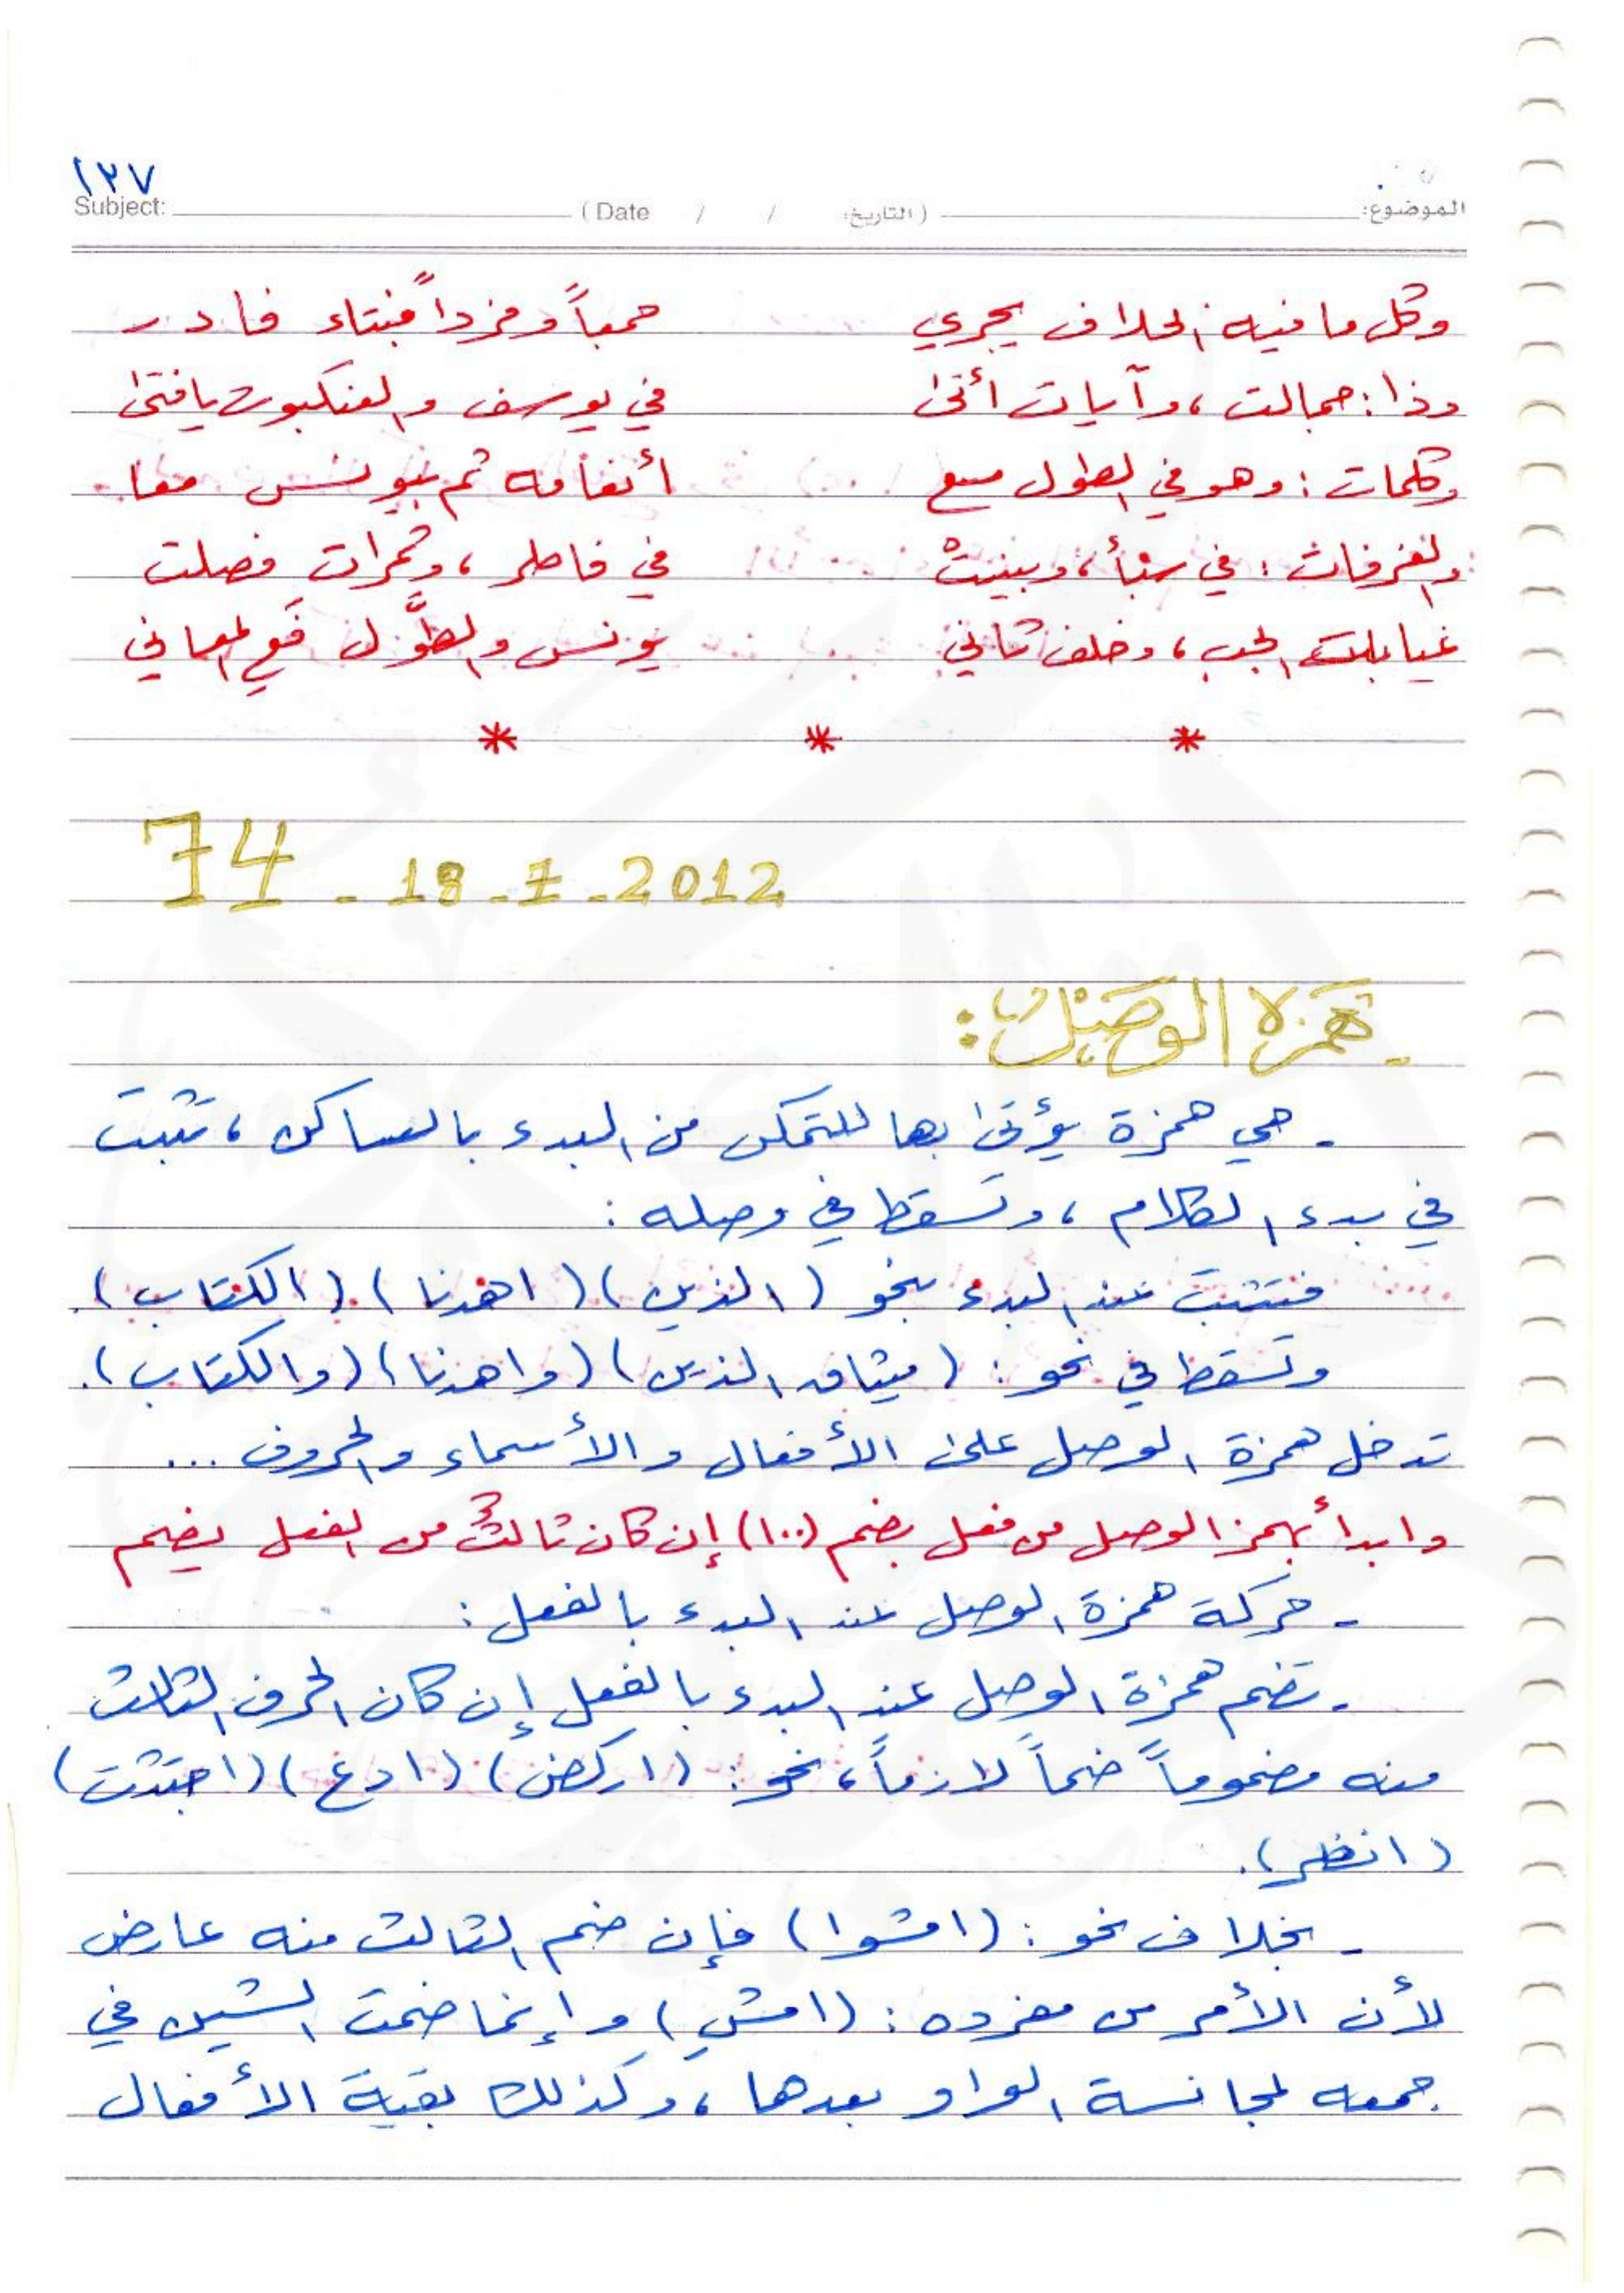 ١٣٧
Subject: (Date / / التاريخ:) الموضوع:
وكل ما فيه الخلاف يجري جمعاً وفرداً فبتاء فادر
وذا: جمالت، وآيات أتى في يوسف والعنكبوت يا فتى
وكلمات: وهو في الطول مع أنعامه ثم بيونس معا
والغرفات: في سبأ، وبينتْ في فاطر، وثمرات فصلت
غيابات الجب، وخلف ثاني يونس والطَّول فعِ المعاني
* * *
74 - 18 - 7 - 2012
- همزة الوصل:
- هي همزة يؤتى بها للتمكن من البدء بالساكن، تثبت
في بدء الكلام، وتسقط في وصله:
فتثبت عند البدء بنحو (الذين) (اهدنا) (الكتاب).
وتسقط في نحو: (ميثاق الذين) (واهدنا) (والكتاب).
تدخل همزة الوصل على الأفعال والأسماء والحروف ...
وابدأ بهمز الوصل من فعل بضم (١٠٠) إن كان ثالثٌ من الفعل يضم
- حركة همزة الوصل عند البدء بالفعل:
- تضم همزة الوصل عند البدء بالفعل إن كان الحرف الثالث
منه مضموماً ضماً لازماً، نحو: (اركض) (ادع) (اجتثت)
(انظر).
- بخلاف نحو: (امشوا) فإن ضم الثالث منه عارض
لأن الأمر من مفرده: (امشِ) وإنما ضمت الشين في
جمعه لمجانسة الواو بعدها، وكذلك بقية الأفعال